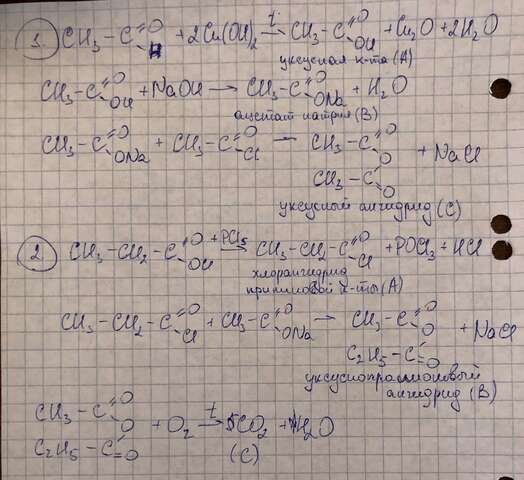 1. CH₃-C(=O)H + 2Cu(OH)₂ →t CH₃-C(=O)OH + Cu₂O + 2H₂O
уксусная к-та (A)
CH₃-C(=O)OH + NaOH → CH₃-C(=O)ONa + H₂O
ацетат натрия (B)
CH₃-C(=O)ONa + CH₃-C(=O)Cl — CH₃-C(=O)-O-C(=O)-CH₃ + NaCl
уксусный ангидрид (C)
2. CH₃-CH₂-C(=O)OH +PCl₅→ CH₃-CH₂-C(=O)Cl + POCl₃ + HCl
хлорангидрид
к-ты (A)
CH₃-CH₂-C(=O)Cl + CH₃-C(=O)ONa → CH₃-C(=O)-O-C(=O)-C₂H₅ + NaCl
уксуснопропионовый
ангидрид (B)
CH₃-C(=O)-O-C(=O)-C₂H₅ + O₂ →t 5CO₂ + 4H₂O
(C)